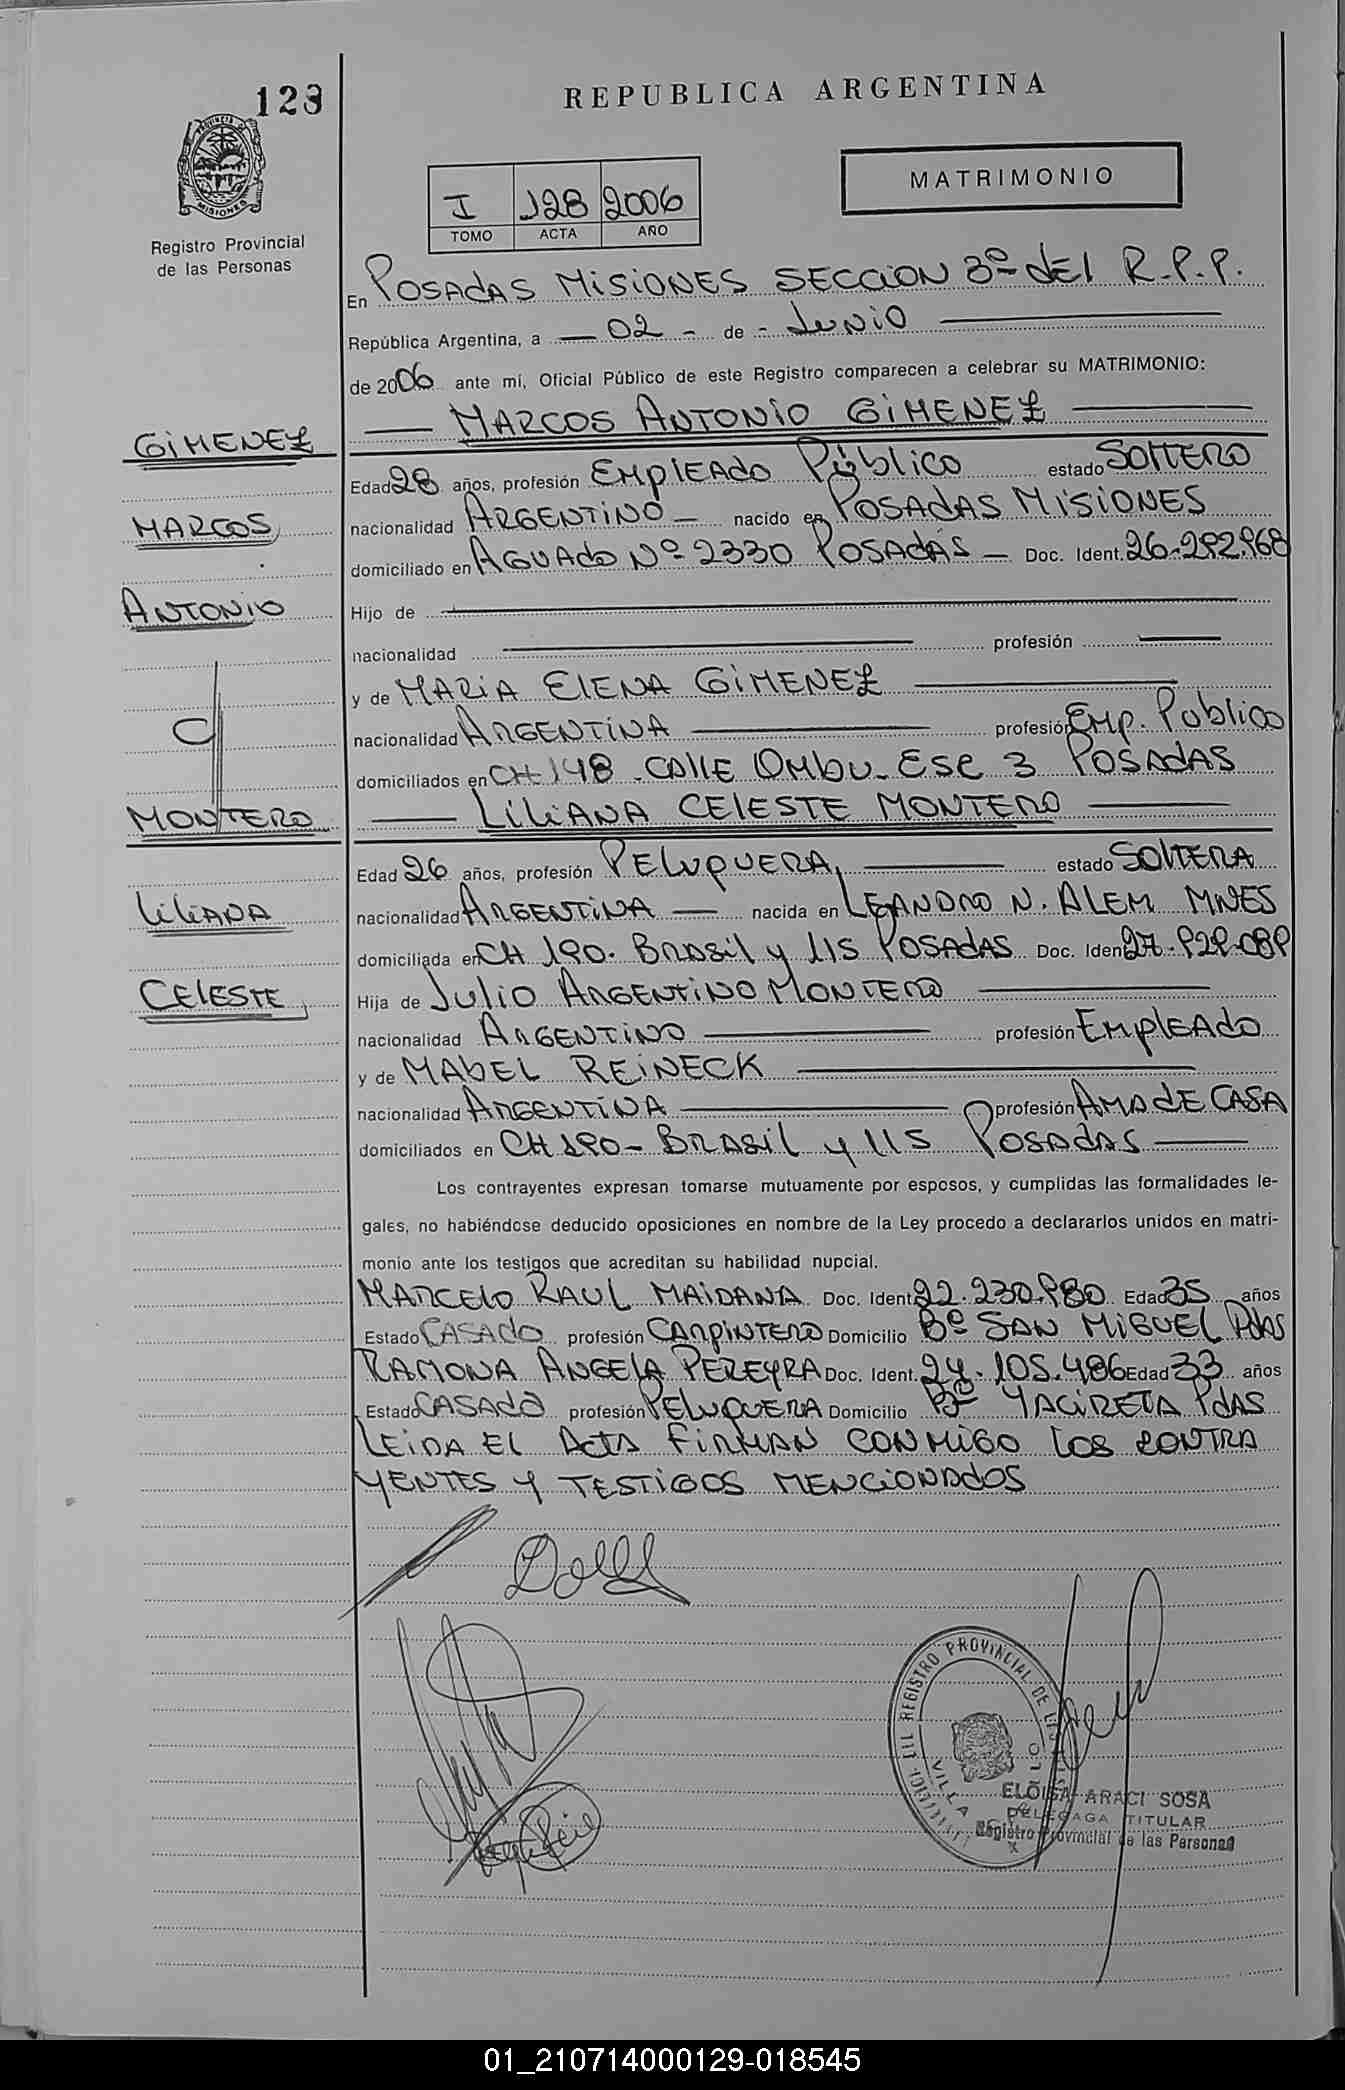 128
REPUBLICA ARGENTINA
PROVINCIA DE
MISIONES
Registro Provincial
de las Personas
I 128 2006
TOMO ACTA AÑO
MATRIMONIO
En POSAdAS MiSiONES SECCiON 3º dEl R.P.P.
República Argentina, a — 02 - de - Junio
de 2006 ante mí, Oficial Público de este Registro comparecen a celebrar su MATRIMONIO:
— MARCOS ANTONIO GiMENEZ —
GiMENEZ
Edad 28 años, profesión EMplEAdo Público estado SOlTERO
MARCOS
nacionalidad ARGENTiNO — nacido en POSAdAS MiSiONES
domiciliado en AGUAdo Nº 2330 POSAdAS — Doc. Ident. 26.292.968
ANTONIO
Hijo de —
nacionalidad — profesión —
y de MARiA ElENA GiMENEZ —
nacionalidad ARGENTiNA — profesión Emp. Publico
c/
domiciliados en CH 148 - CAllE OMbu - Esc 3 POSAdAS
MONTERO
— LiLiANA CElESTE MONTERO —
Edad 26 años, profesión PELuquERA, — estado SOlTERA
LiLiANA
nacionalidad ARGENTiNA — nacida en LEANDRO N. ALEM MNES
domiciliada en CH 190. BRASil y 115 POSAdAS Doc. Iden 27.929.089
CElESTE
Hija de Julio ARGENTiNO MONTERO —
nacionalidad ARGENTiNO — profesión EMplEAdo
y de MAbEL REiNECK —
nacionalidad ARGENTiNA — profesión AMA dE CASA
domiciliados en CH 190 - BRASil y 115 POSAdAS —
Los contrayentes expresan tomarse mutuamente por esposos, y cumplidas las formalidades le-
gales, no habiéndose deducido oposiciones en nombre de la Ley procedo a declararlos unidos en matri-
monio ante los testigos que acreditan su habilidad nupcial.
MARCElO RAUL MAiDANA Doc. Ident. 22.230.980 Edad 35 años
Estado CASAdO profesión CARpiNTERO Domicilio Bº SAN MiGUEL PdAS
RAMONA ANGELA PEREYRA Doc. Ident. 24.105.486 Edad 33 años
Estado CASAdO profesión PELuquERA Domicilio Bº YACiRETA PdAS
LEiDA El ActA FiRMAN CONMiGO lOS CONTRA
YENTES y TESTiGOS MENCiONAdOS
REGISTRO PROVINCIAL DE
VILLA
ELOISA ARACI SOSA
DELEGAGA TITULAR
Registro Provincial de las Personas
01_210714000129-018545